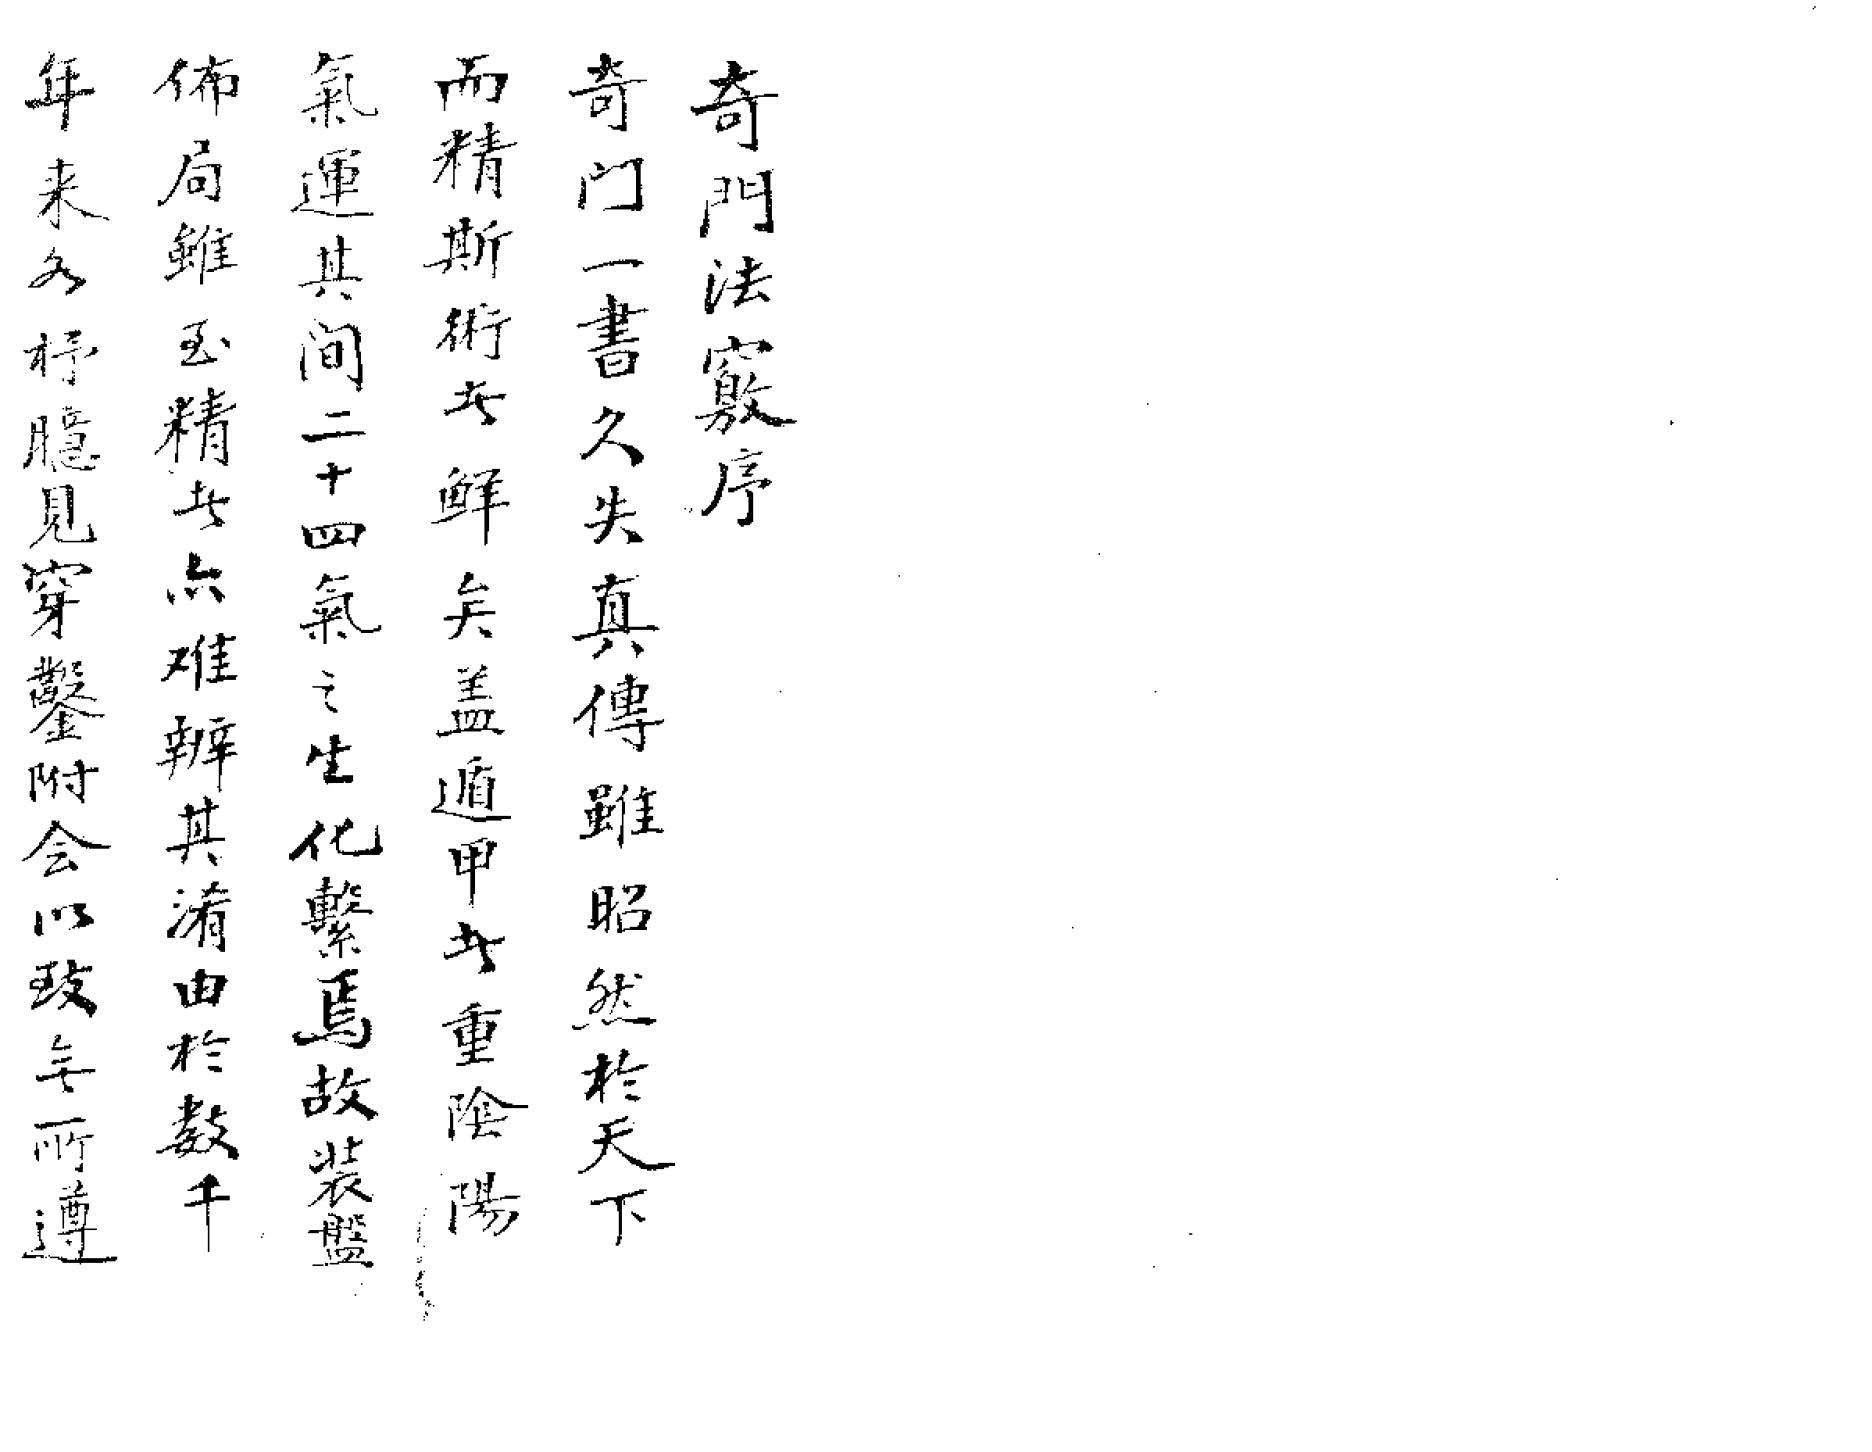 奇門法竅序
奇门一書久失真傳雖昭然於天下
而精斯術者鲜矣盖遁甲者重陰陽
氣運其间二十四氣之生化繫焉故装盤
佈局雖至精者亦难辨其淆由於数千
年来各抒臆見穿鑿附会以致无所遵